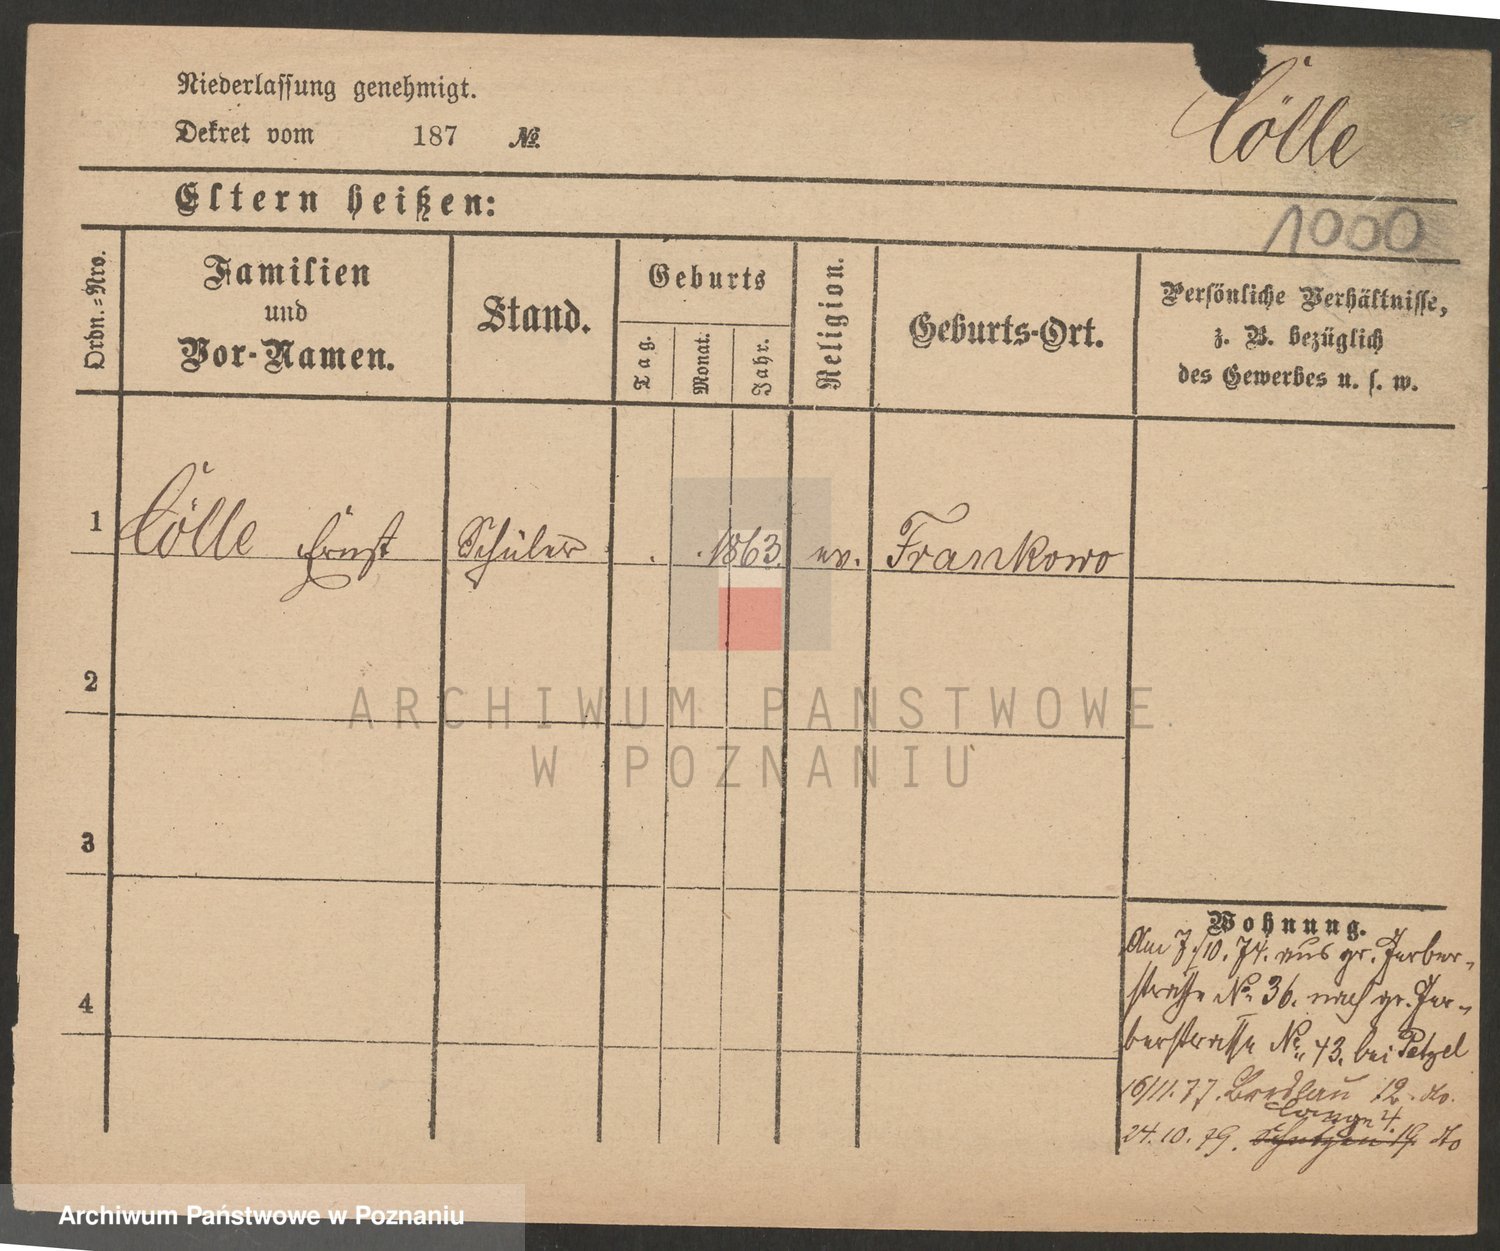 Niederlassung genehmigt.
Dekret vom 187 №.
Cölle
Eltern heißen:
1000
Ordn.=Nro.
Familien
und
Vor-Namen.
Stand.
Geburts
Tag.
Monat.
Jahr.
Religion.
Geburts-Ort.
Persönliche Verhältnisse,
z. B. bezüglich
des Gewerbes u. s. w.
1 Cölle Ernst Schüler . . 1863. ev. Frankowo
2
ARCHIWUM PAŃSTWOWE
W POZNANIU
3
Wohnung.
Am 7/10. 74. aus gr. Gerber-
strasse No. 36. nach gr. Ger-
4
berstrasse No. 43. bei Petzel
16/11. 77. Breslau 12. do.
Lange 4.
24. 10. 79. Schützen 19 do
Archiwum Państwowe w Poznaniu